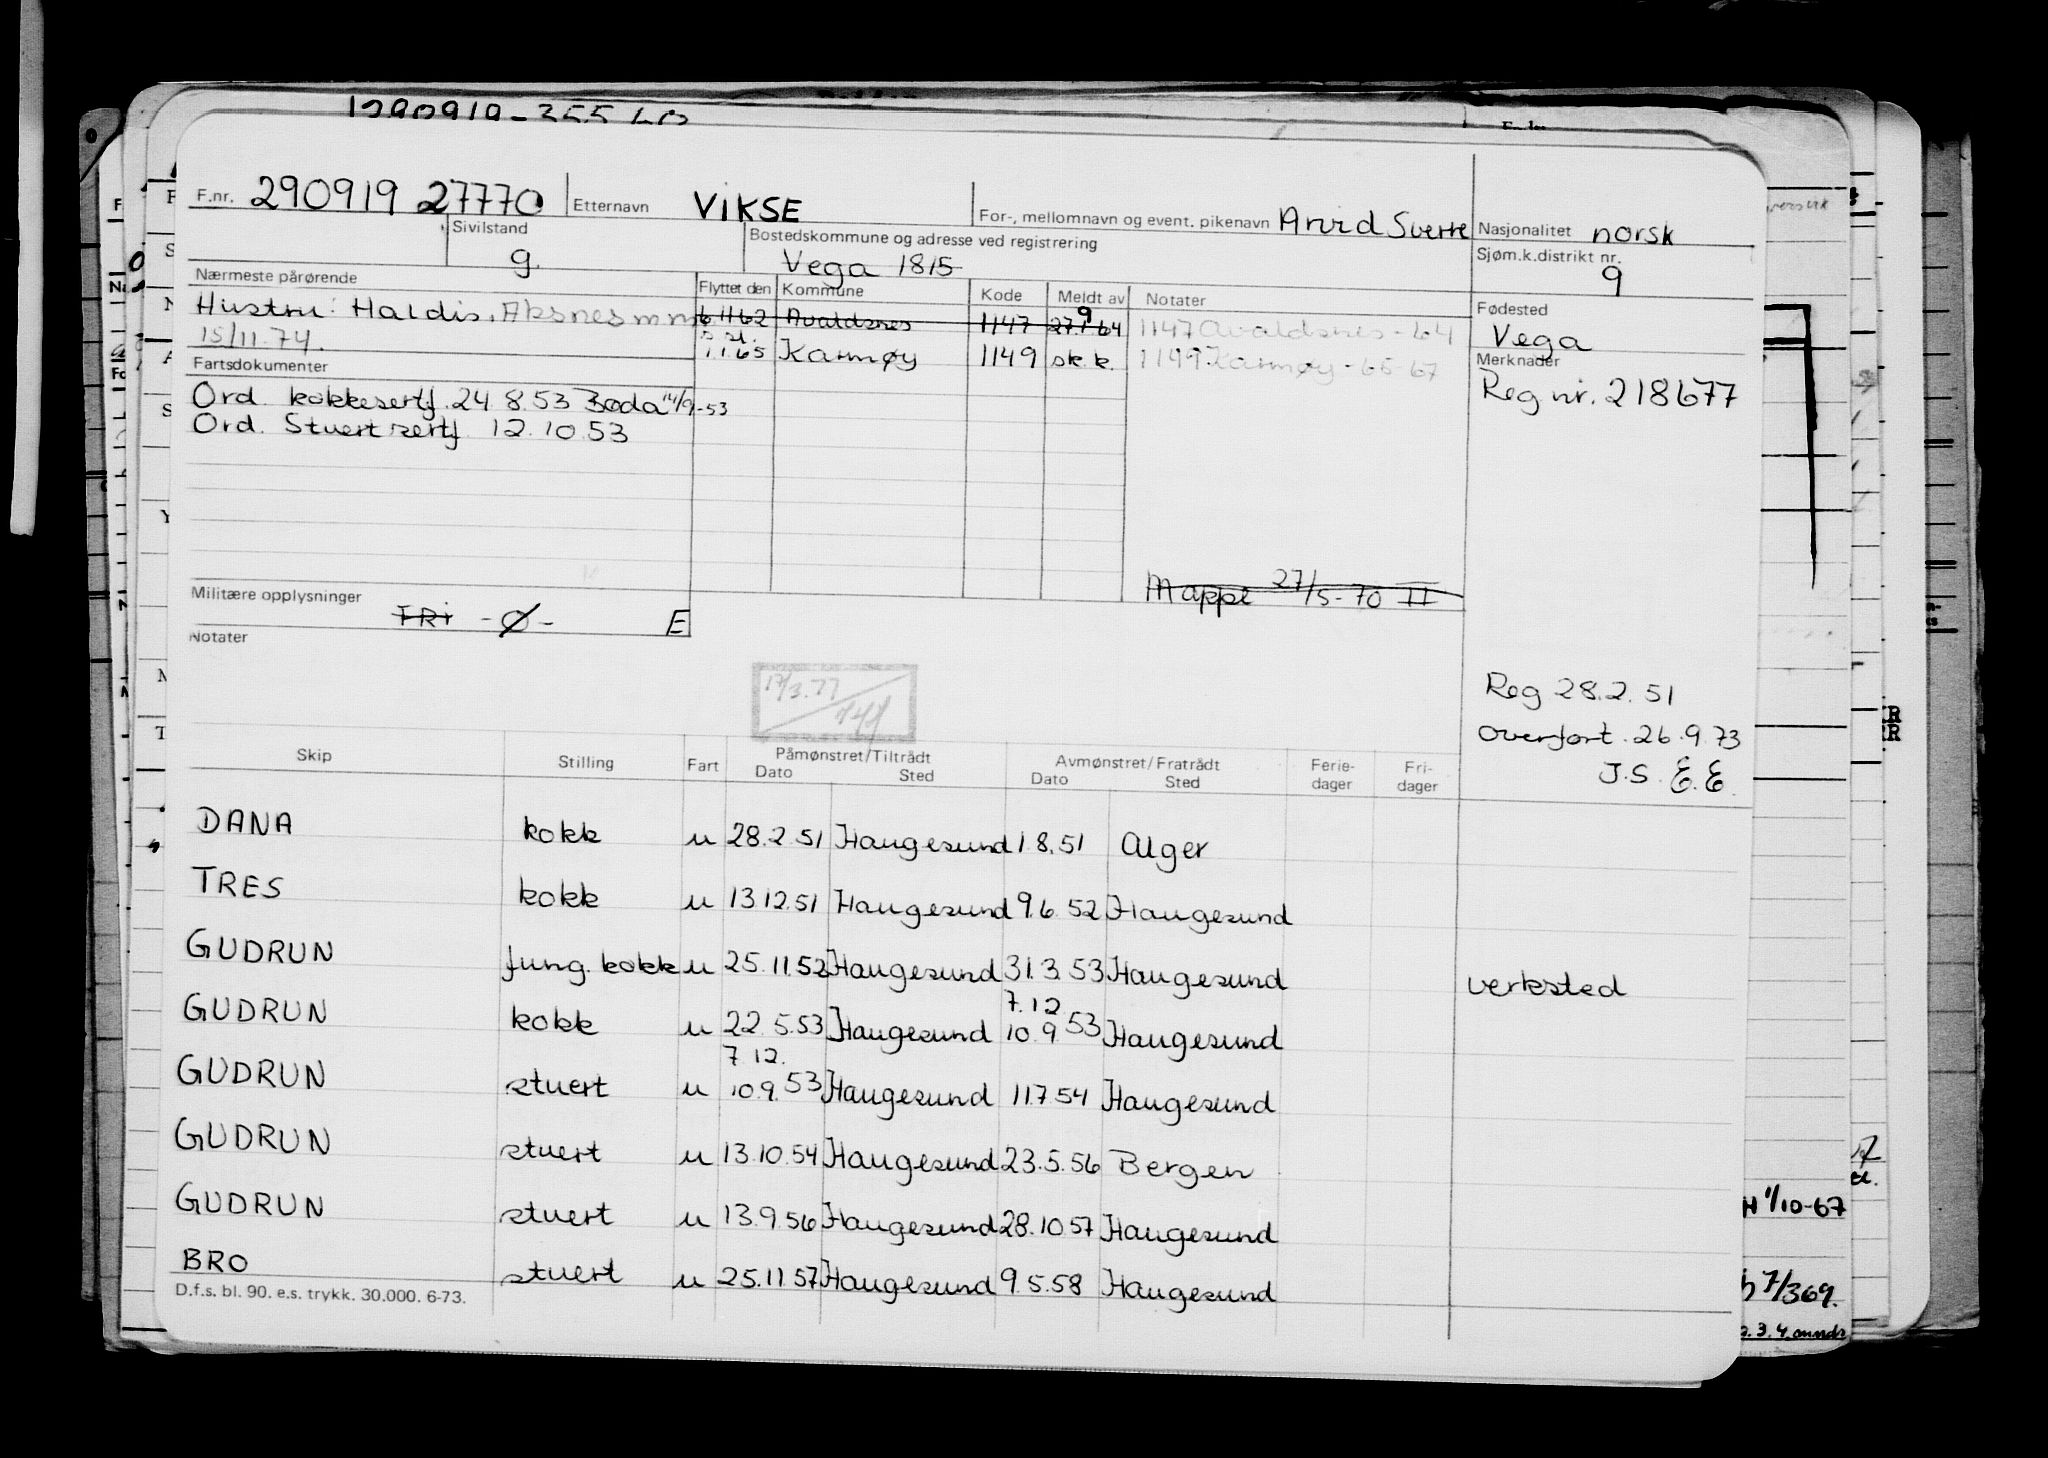 1290919-355
F.nr. 290919 27770 Etternavn VIKSE For-, mellomnavn og event. pikenavn Arvid Sverre Nasjonalitet norsk
Sivilstand g. Bostedskommune og adresse ved registrering Vega 1815 Sjøm.k.distrikt nr. 9
Nærmeste pårørende Flyttet den Kommune Kode Meldt av Notater Fødested
Hustru: Haldis, Aksnes m m 6.11 62 Avaldsnes 1147 27.1.64 9 1147 Avaldsnes - 64 Vega
15/11.74. 1.1.65 Karmøy 1149 sk.k. 1149 Karmøy - 65-67
Fartsdokumenter Merknader
Ord. kokkesertf. 24.8.53 Bodø 14/9-53 Reg nr. 218677
Ord. Stuertsertf. 12.10.53
Mappe 27/5-70 II
Militære opplysninger FRI -Ø- E
Notater
17/3.77
Reg 28.2.51
Overført. 26.9.73
J.S. E.E.
Skip Stilling Fart Påmønstret/Tiltrådt Avmønstret/Fratrådt Ferie- Fri-
Dato Sted Dato Sted dager dager
DANA kokk u 28.2.51 Haugesund 1.8.51 Alger
TRES kokk u 13.12.51 Haugesund 9.6.52 Haugesund
GUDRUN fung. kokk u 25.11.52 Haugesund 31.3.53 Haugesund verksted
7.12
GUDRUN kokk u 22.5.53 Haugesund 10.9.53 Haugesund
7.12.
GUDRUN stuert u 10.9.53 Haugesund 11.7.54 Haugesund
GUDRUN stuert u 13.10.54 Haugesund 23.5.56 Bergen
GUDRUN stuert u 13.9.56 Haugesund 28.10.57 Haugesund
BRO stuert u 25.11.57 Haugesund 9.5.58 Haugesund
D.f.s. bl. 90. e.s. trykk. 30.000. 6-73.
1/10-67
7/369.